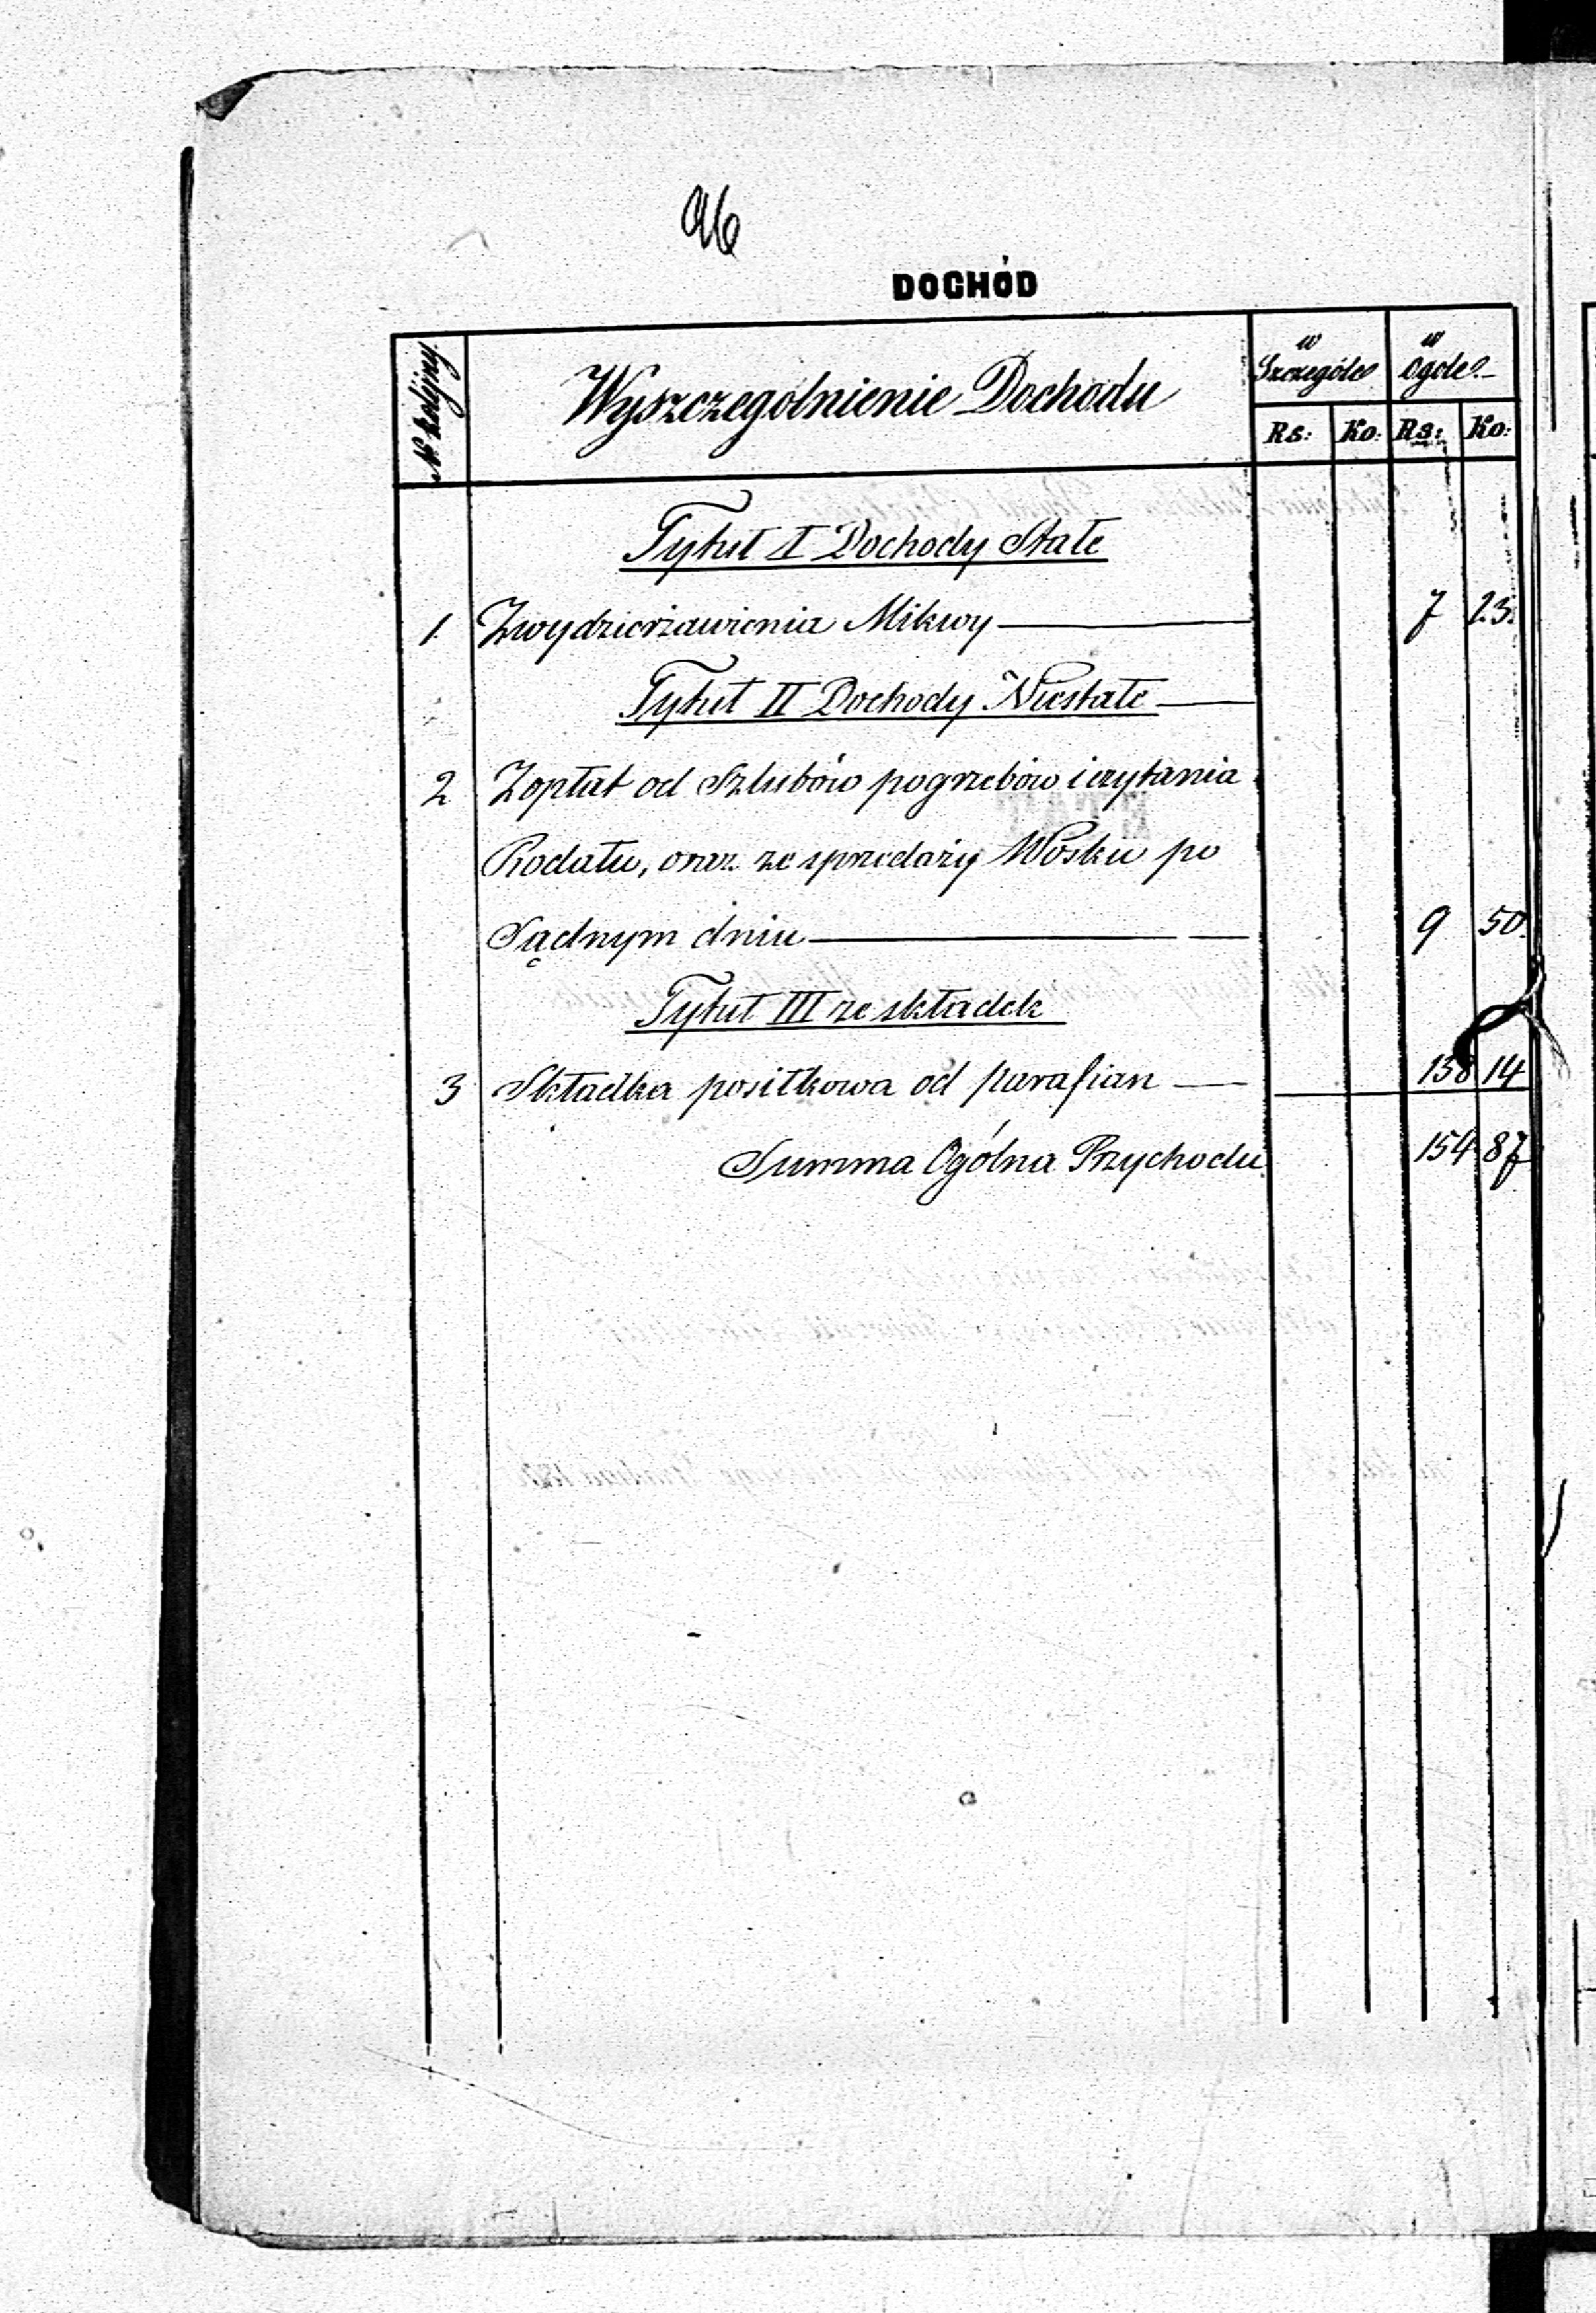 96
DOCHÓD
No kolijny.
Wyszczególnienie Dochodu
w Szczególe
w Ogóle
Rs: Ko: Rs: Ko:
Tytuł I Dochody Stałe
1. Zwydzierżawienia Mikwy 7 23.
Tytuł II Dochody Niestałe
2 Zopłat od Szlubów pogrzebów i czytania
Rodału, oraz ze sprzedaży Wosku po
Sądnym dniu 9 50.
Tytuł III ze składek
3 Składka posiłkowa od parafian 138 14
Summa Ogólna Przychodu 154 87